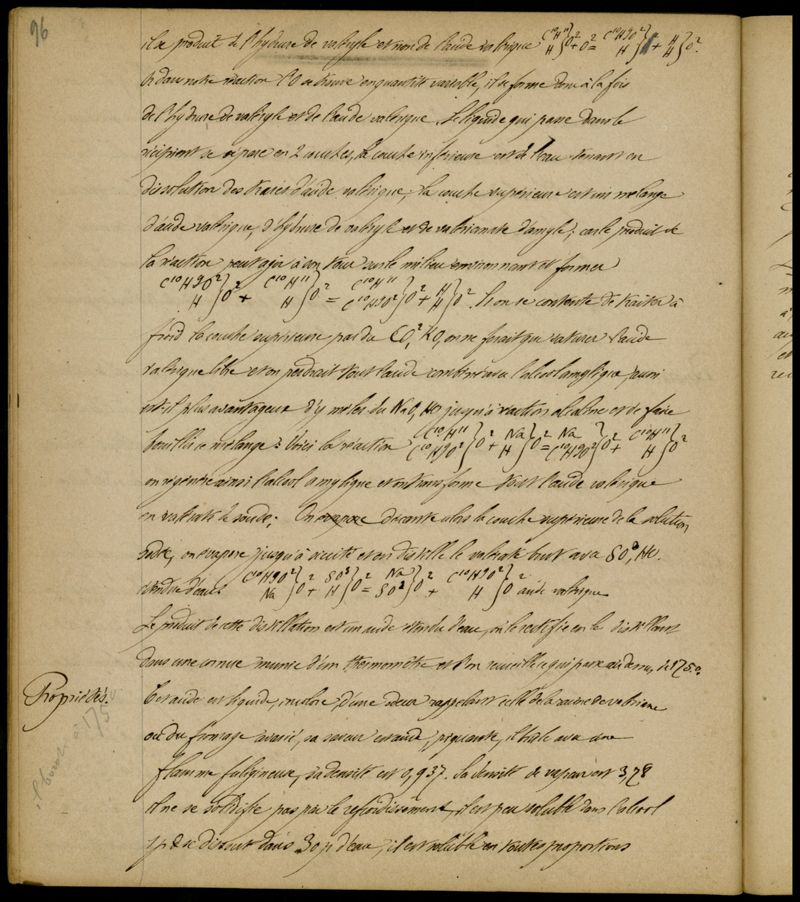 96
il se produit de l'hydrure de valéryle et non de l'acide valérique C¹⁰H¹¹ H}O²+O²= C¹⁰H⁹O² H}+ H H}O².
Or dans notre réaction l'O se trouve en quantité variable, il se forme donc à la fois
de l'hydrure de valéryle et de l'acide valérique. Le liquide qui passe dans le
récipient se sépare en 2 couches, la couche inférieure est de l'eau tenant en
dissolution des traces d'acide valérique, la couche supérieure est un mélange
d'acide valérique, d'hydrure de valéryle et de valérianate d'amyle; car le produit de
la réaction peut agir à son tour sur le milieu environnant et former
C¹⁰H⁹O² H}O² + C¹⁰H¹¹ H}O² = C¹⁰H¹¹ C¹⁰H⁹O²}O² + H H}O². Si on se contente de traiter à
froid la couche supérieure par du CO², KO, on ne ferait que saturer l'acide
valérique libre et on perdrait tout l'acide combiné avec l'alcool amylique, aussi
est-il plus avantageux d'y mêler du NaO, HO jusqu'à réaction alcaline et de faire
bouillir ce mélange : Voici la réaction C¹⁰H¹¹ C¹⁰H⁹O²}O² + Na H}O² = Na C¹⁰H⁹O²}O² + C¹⁰H¹¹ H}O²
on régénère ainsi l'alcool amylique et on transforme tout l'acide valérique
en valérate de soude. On évapore décante alors la couche supérieure de la solution
on évapore jusqu'à siccité et on distille le valérate brut avec SO³, HO.
étendu d'eau. C¹⁰H⁹O² Na}O² + SO³ H}O² = Na SO³}O² + C¹⁰H⁹O² H}O² acide valérique
Le produit de cette distillation est un acide étendu d'eau, on le rectifie en le distillant
dans une cornue munie d'un thermomètre et l'on recueille ce qui passe au dessus de 175°.
Propriétés.
Cet acide est liquide, incolore, d'une odeur rappelant celle de la racine de valériane
ou du fromage avarié, sa saveur est acide, piquante, il brûle avec une
flamme fuligineuse, sa densité est 0,937. sa densité de vapeur est 3,78
il bout à 175°
il ne se solidifie pas par le refroidissement, il est peu soluble dans l'alcool
1 p. se dissout dans 30 p. d'eau, il est soluble en toutes proportions